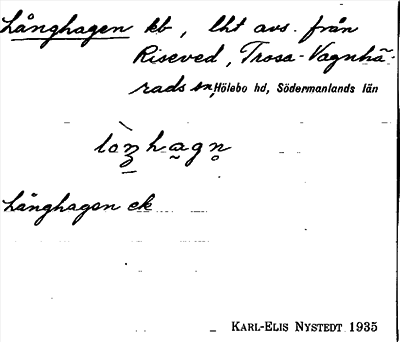 Långhagen kb, lht avs. från
Riseved, Trosa-Vagnhä-
rads sn, Hölebo hd, Södermanlands län
Långhagen ek
KARL-ELIS NYSTEDT 1935